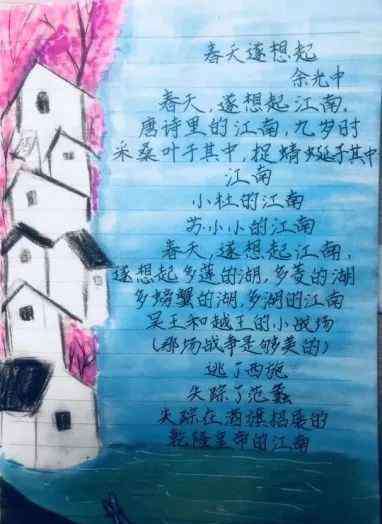 春天遂想起
余光中
春天,遂想起江南,
唐诗里的江南,九岁时
采桑叶于其中,捉蜻蜓于其中
江南
小杜的江南
苏小小的江南
春天,遂想起江南,
遂想起多莲的湖,多菱的湖
多螃蟹的湖,多湖的江南
吴王和越王的小战场
(那场战争是够美的)
逃了西施
失踪了范蠡
失踪在酒旗招展的
乾隆皇帝的江南